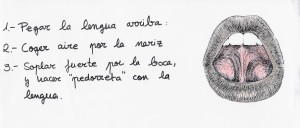 1.- Pegar la lengua arriba:
2.- Coger aire por la nariz
3.- Soplar fuerte por la boca,
y hacer "pedorreta" con la
lengua.